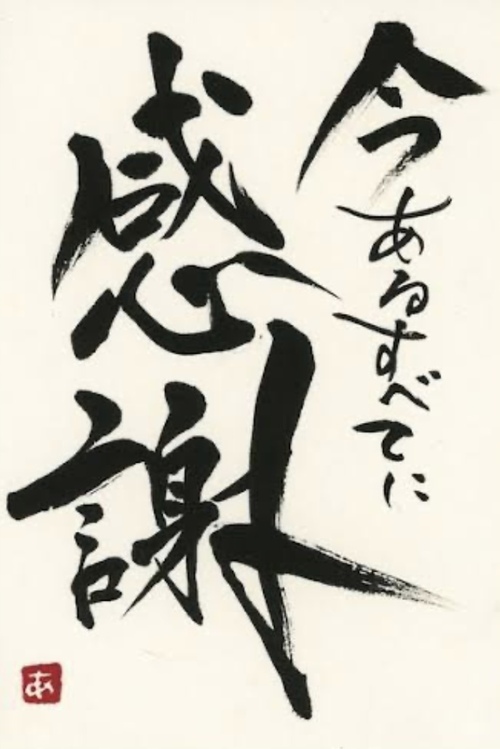 今あるすべてに
感謝
あ